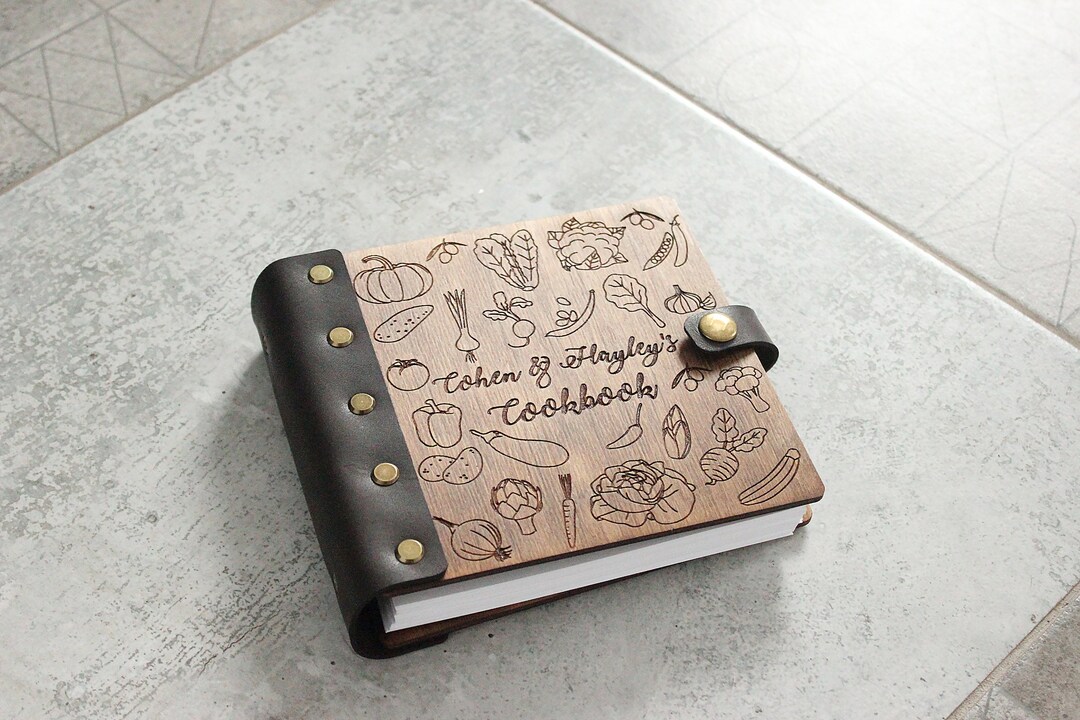 Cohen & Hayley's
Cookbook